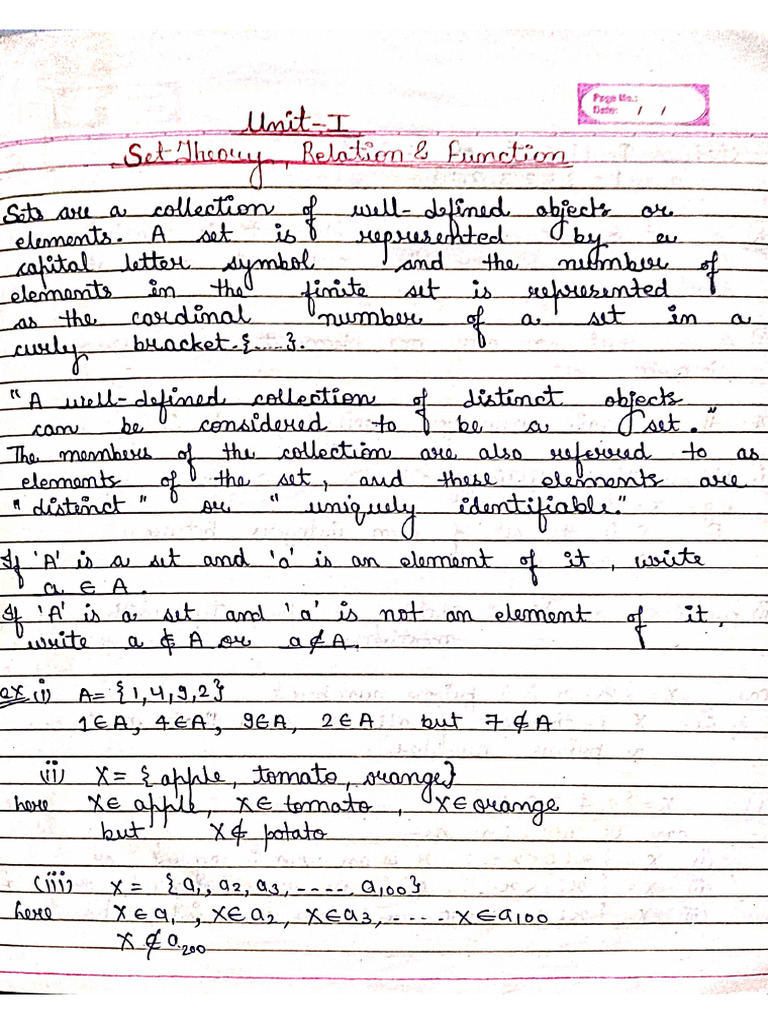 Page No.:
Date: / /
Unit-I
Set Theory, Relation & Function
Sets are a collection of well-defined objects or
elements. A set is represented by a
capital letter symbol and the number of
elements in the finite set is represented
as the cardinal number of a set in a
curly bracket {.....}.
"A well-defined collection of distinct objects
can be considered to be a set."
The members of the collection are also referred to as
elements of the set, and these elements are
"distinct" or "uniquely identifiable."
If 'A' is a set and 'a' is an element of it, write
a ∈ A.
If 'A' is a set and 'a' is not an element of it,
write a ∉ A or a ∉ A.
ex (i) A = {1,4,9,2}
1∈A, 4∈A, 9∈A, 2∈A but 7 ∉ A
(ii) X = {apple, tomato, orange}
here X∈ apple, X∈ tomato, X∈orange
but X∉ potato
(iii) X = {a₁, a₂, a₃, ---- a₁₀₀}
here X∈a₁, X∈a₂, X∈a₃, ---- X∈a₁₀₀
X ∉ a₂₀₀